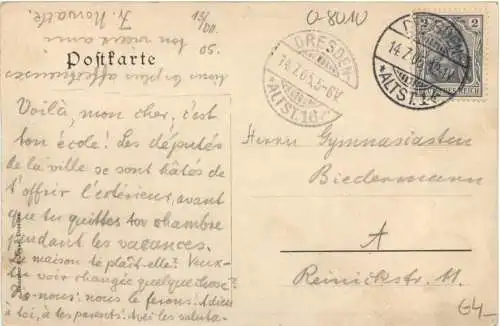 0-8010
13/VII.
05.
ton vieux ami
Postkarte
Voilà, mon cher, c'est
ton école! Les députés
de la ville se sont hâtés de
t'offrir l'extérieur, avant
que tu quittes ton chambre
pendant les vacances.
La maison te plaît-elle? Veux-
tu voir changée quelque chose?
Dis-nous: nous le ferons! Adieu
à toi, à tes parents! les saluta-
DRESDEN
14.7.05
*ALTST.16
DRESDEN
14.7.05
*ALTST.16
2
2
REICH
Herrn Gymnasiasten
Biedermann
A
Reinickstr. 11.
64-